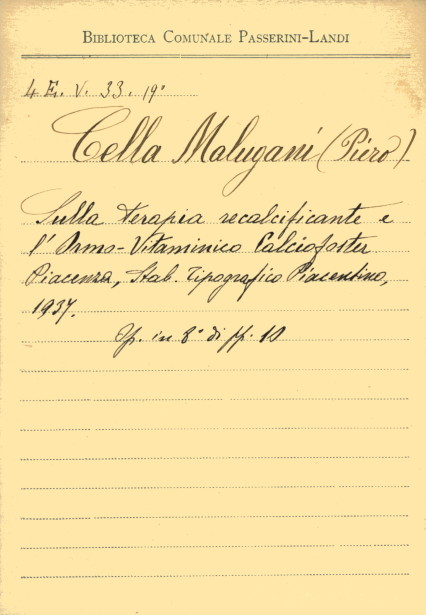 BIBLIOTECA COMUNALE PASSERINI-LANDI
4 E. V. 33. 19°
Cella Malugani (Piero)
Sulla terapia recalcificante e
l'Ormo-Vitaminico Calciofoster
Piacenza, Stab. Tipografico Piacentino,
1937.
Op. in 8° di pp. 10